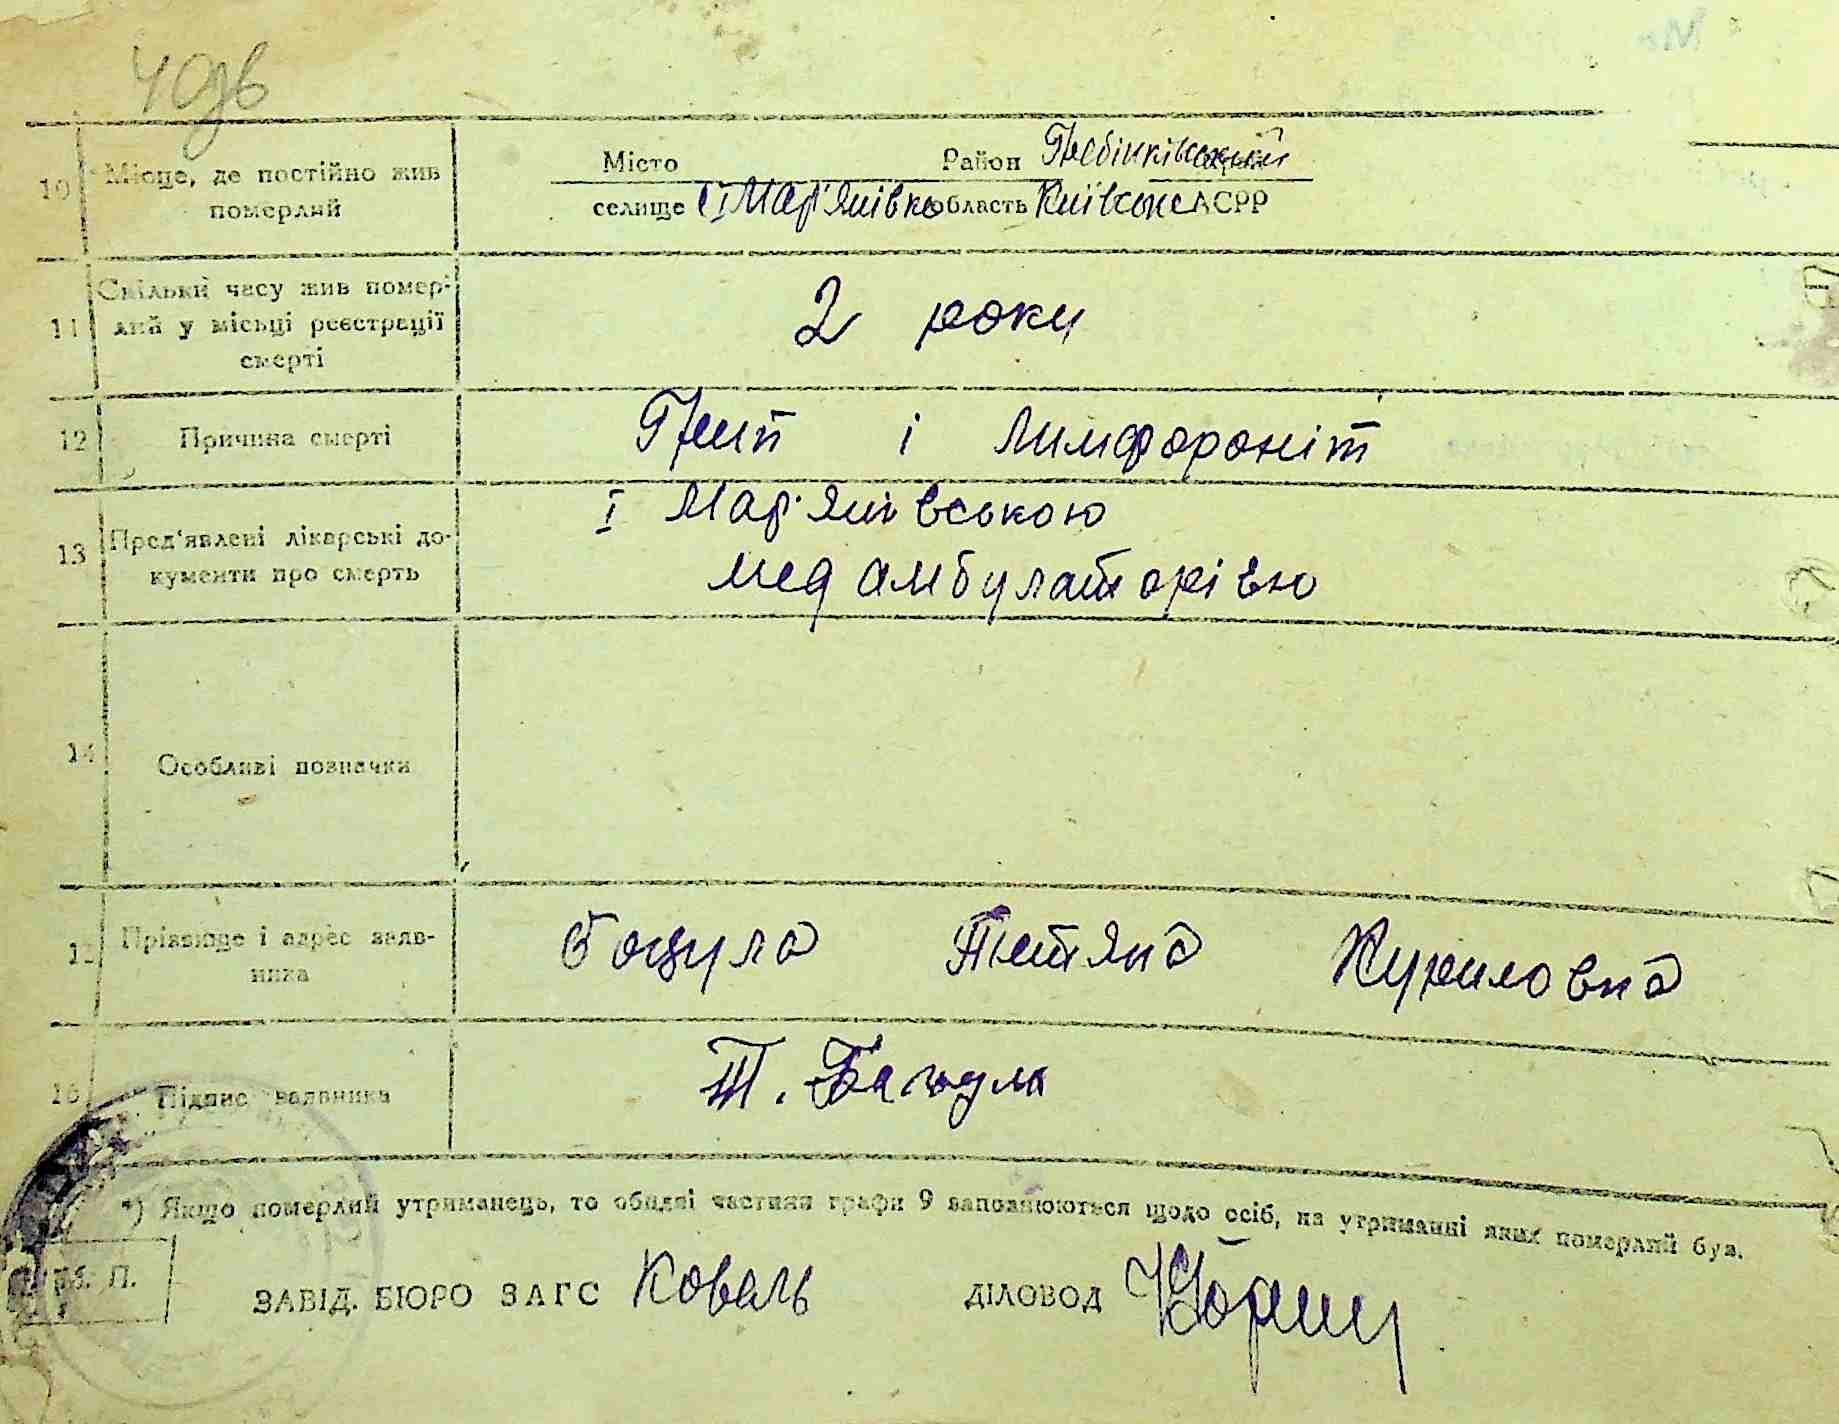 10 Місце, де постійно жив померлий
Місто Район Гребінківський
селище І Мар'янівка область Київська АСРР
11 Скільки часу жив померлий у місьці реєстрації смерті
2 роки
12 Причина смерті
Грип і
13 Пред'явлені лікарські документи про смерть
І Мар'янівською
медамбулаторією
14 Особливі позначки
15 Прізвище і адрес заявника
Бацула Тетяна Куриловна
16 Підпис заявника
Т. Бацула
*) Якщо померлий утриманець, то обидві частини графи 9 заповнюються щодо осіб, на утриманні яких померлий був.
ЗАВІД. БЮРО ЗАГС Коваль ДІЛОВОД